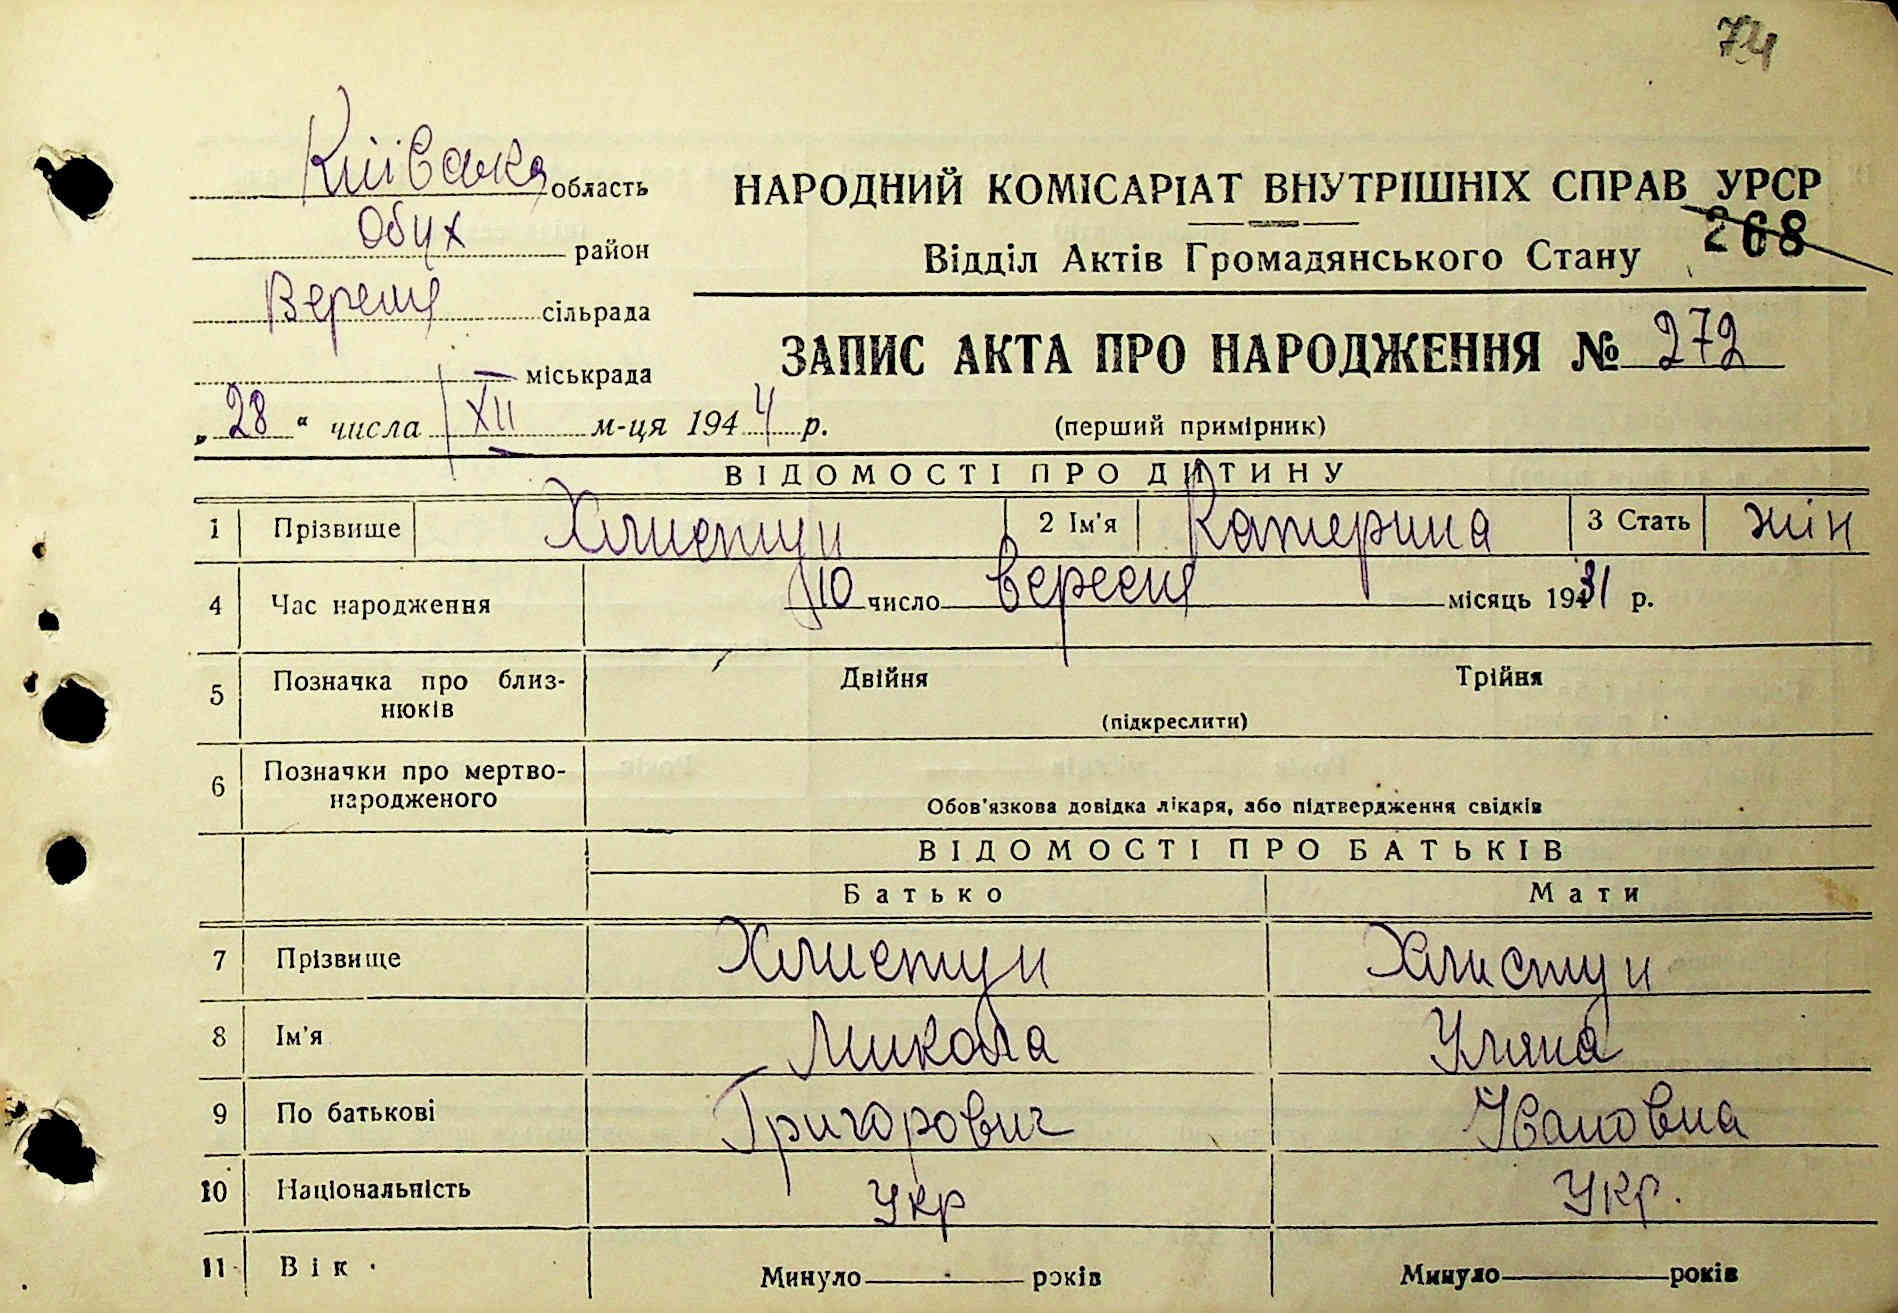 74
Київська область
Обух район
НАРОДНИЙ КОМІСАРІАТ ВНУТРІШНІХ СПРАВ УРСР
268
Відділ Актів Громадянського Стану
сільрада
міськрада
ЗАПИС АКТА ПРО НАРОДЖЕННЯ № 272
„28“ числа XII м-ця 1944 р.
(перший примірник)
ВІДОМОСТІ ПРО ДИТИНУ
1 Прізвище Хлистун 2 Ім'я Катерина 3 Стать жін
4 Час народження 10 число вересня місяць 1931 р.
5 Позначка про близнюків Двійня Трійня
(підкреслити)
6 Позначки про мертвонародженого
Обов'язкова довідка лікаря, або підтвердження свідків
ВІДОМОСТІ ПРО БАТЬКІВ
Батько Мати
7 Прізвище Хлистун Хлистун
8 Ім'я Микола Уляна
9 По батькові Григорович Івановна
10 Національність Укр Укр.
11 Вік Минуло років Минуло років